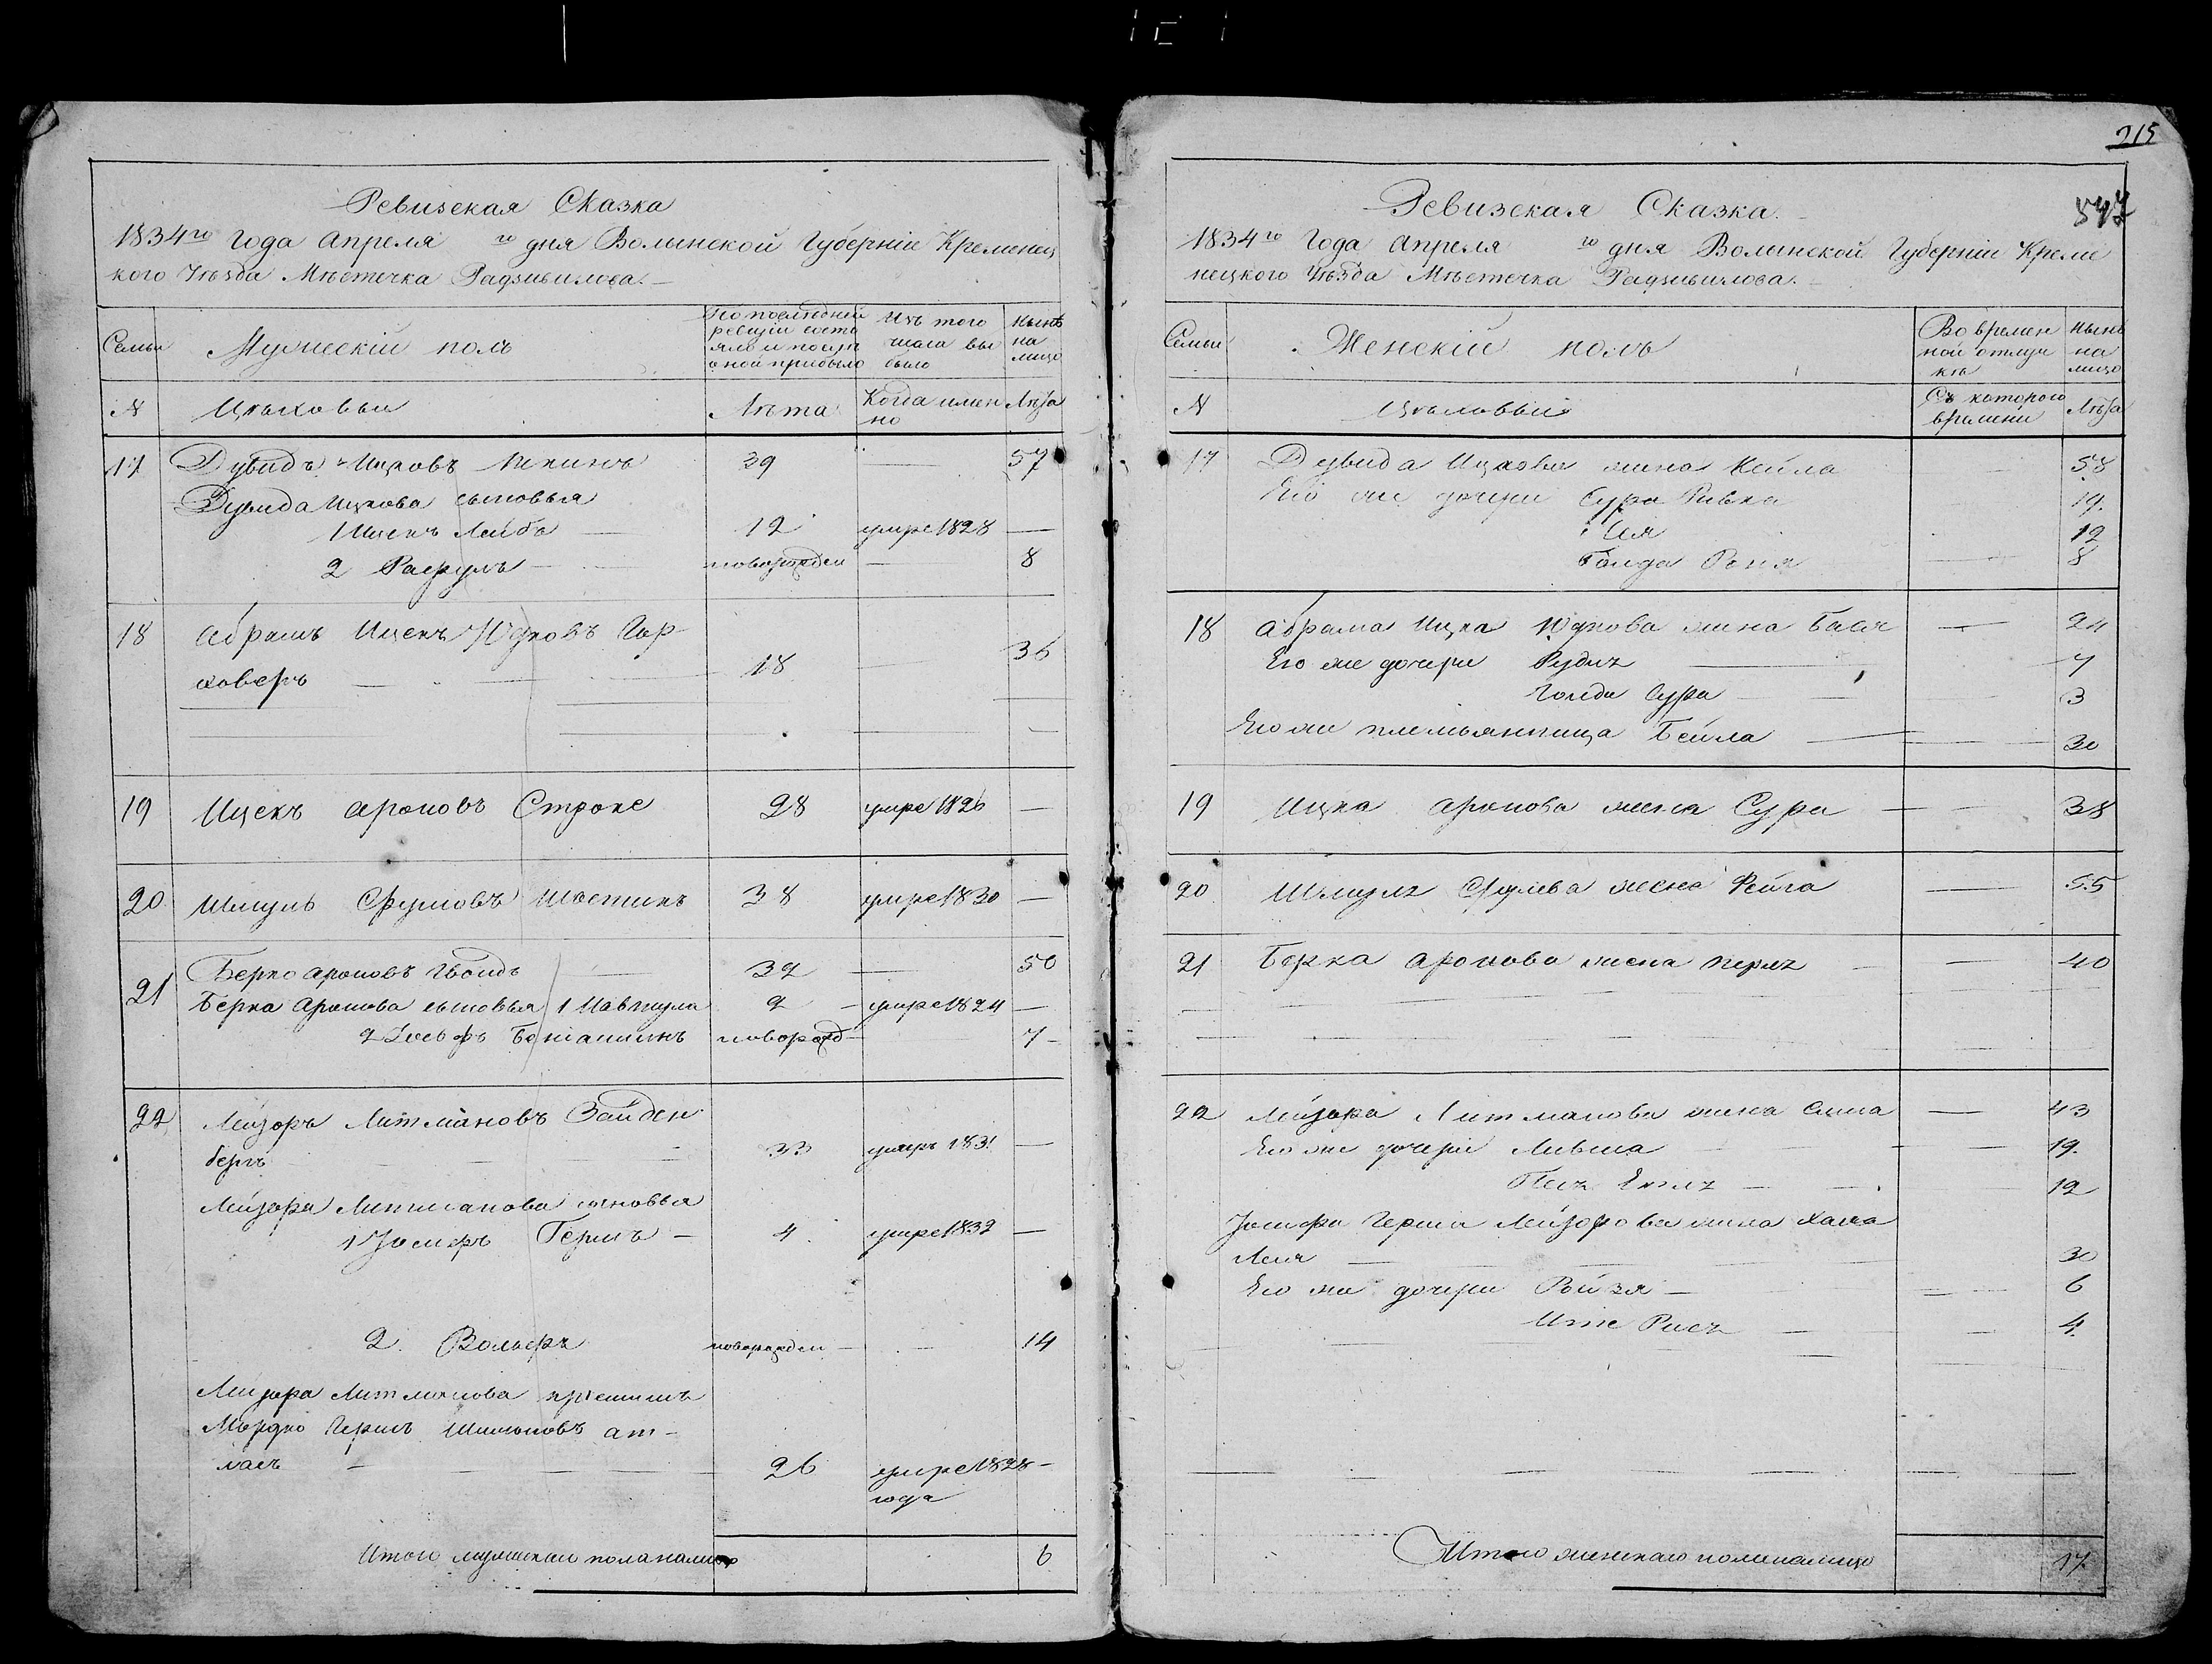 Ревизская Сказка
1834го Года Апреля го дня Волынской Губернiи Кременец
кого Уѣзда Мѣстечка Радзивилова.
Семьи
Мужескiй полъ
По последней ревизiи состо яло и после оной прибыло
Изъ того числа вы было
Нынѣ на лицо
№
Цѣховыи
Лѣта
Когда имен но
Лѣта
17 Дувидъ Ицковъ 39 — 57
Дувида Ицкова сыновья
1 Ицекъ Лейба — 12 умре 1828 —
2 Расрулъ — новорожден — 8
18 Абрамъ Ицекъ Юдковъ Гор-
ховеръ — 18 36
19 Ицекъ Ароновъ Строке 28 умре 1826 —
20 Шмуль Сруловъ 38 умре 1830 —
21 Берко Ароновъ Гвоидъ 32 — 50
Берка Аронова сыновья 1 Навтула 2 — умре 1824 —
2 Iосъфъ Бениаминъ новорожд — 7 —
22 Лейзоръ Литмановъ Зайден-
бергъ 33 умеръ 1831 —
Лейзора Литманова сыновья
1 Iосифъ Гершъ — 4 умре 1832 —
2. Вольфъ новорожден — 14
Лейзора Литманова
Мордко Гершъ Шимоновъ ат-
ласъ — 26 умре 1828 —
года
Итого мужескаго пола налицо 6
215
547
Ревизская Сказка.
1834го Года Апреля го дня Волынской Губернiи Креме
нецкого Уѣзда Мѣстечка Радзивилова.
Семьи
Женскiй полъ
Во времен ной отлуч кѣ
Нынѣ на лицо
№
Цѣховыи
Съ которого времени
Лѣта
17 Дувида Ицкова жена Кейла 58
Его же дочери Сура Ривка 19.
Ия 12
Голда Роня 8
18 Абрама Ицка Юдкова жена Бася — 24
Его же дочери Рудля 7
Голда Сура — 3
Его же племьянница Бейла — 30
19 Ицка Аронова жена Сура — 38
20 Шмуля Срулева жена Фейга — 55
21 Берка Аронова жена Перля — 40
22 Лейзора Литманова жена Сима — 43
Его же дочери Ливша — 19.
Песя Ентля — 12
Iосифа Герша Лейзорова жена Хана
Лея — 30
Его же дочери Рейзя — 6
Ите Рися — 4.
Итого женскаго пола налицо 17